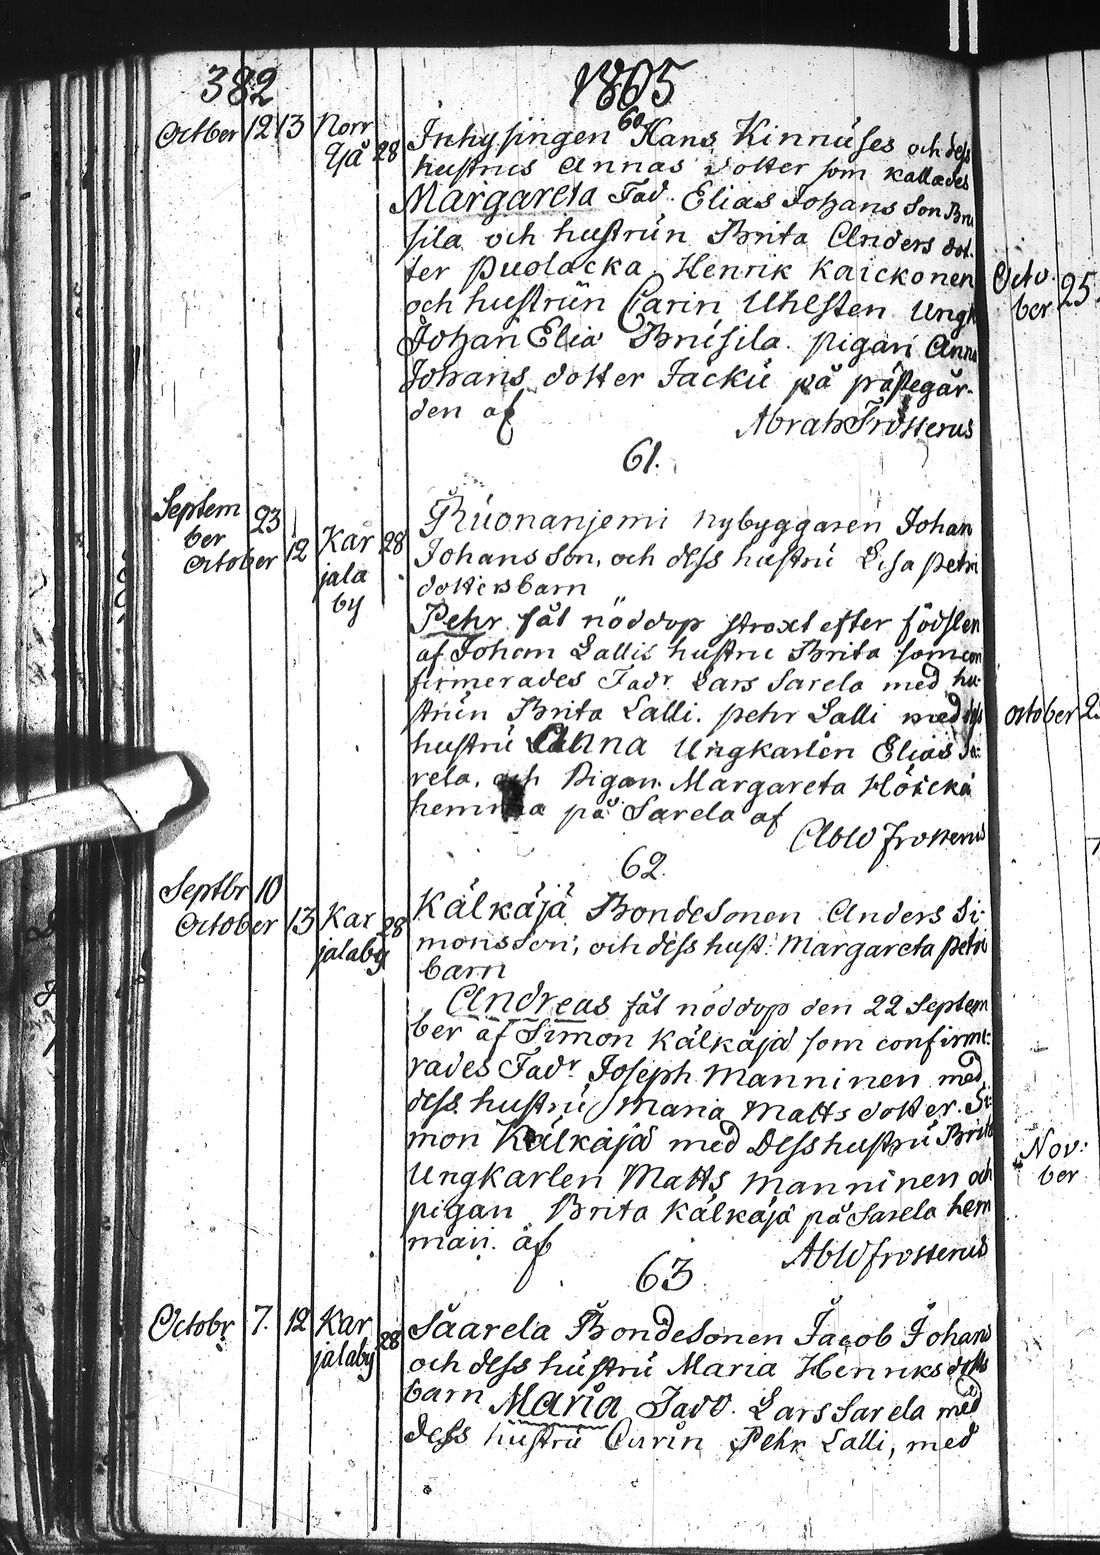 382 1805
60
October 12 13 Norr Yjå 28 Inhysingen Hans Kinnuses och dess
hustrus Annas dotter som kallades
Margareta Fad. Elias Johans Son Bru
sila och hustrun Brita Anders dot.
ter Puolacka Henrik Kaickonen
och hustrun Carin Uhlsten Ungk
Johan Elia Brusila. pigan Anna
Johans dotter Jacku på prästegår-
den af Abrah Frosterus
61.
Septem ber 23
October 12 Kar jala by 28 Ruonanjemi nybyggaren Johan
Johans Son, och dess hustru Lisa Petri
dotters barn
Pehr fåt nöddop straxt efter födslen
af Johan Lallis hustru Brita som con
firmerades Fadr Lars Sarela med hu-
strun Brita Lalli. pehr Lalli med dess
hustru Anna Ungkarlen Elias Sa:
rela, och Pigan Margareta
hemma på Sarela af
Ab W Frosterus
62.
Septbr 10
October 13 Kar jalaby 28 Kälkäjä BondeSonen Anders Si:
monsson, och dess hust: Margareta Petri
barn
Andreas fåt nöddop den 22 Septem
ber af Simon Kälkäjä som confirme:
rades Fadr Joseph Manninen med
dess hustru Maria Matts dotter. Si:
mon Kälkäjä med Dess hustru Brita
Ungkarlen Matts Manninen och
pigan Brita Kälkäjä på Sarela hem
man. af Ab W Frosterus
63
Octobr 7. 12 Kar jalaby 28 Saarela BondeSonen Jacob Johans
och dess hustru Maria Henriks dotts
barn Maria Fadd. Lars Sarela med
dess hustru Carin Pehr Lalli, med
Octo
ber 25.
October 2
Nov:
ber